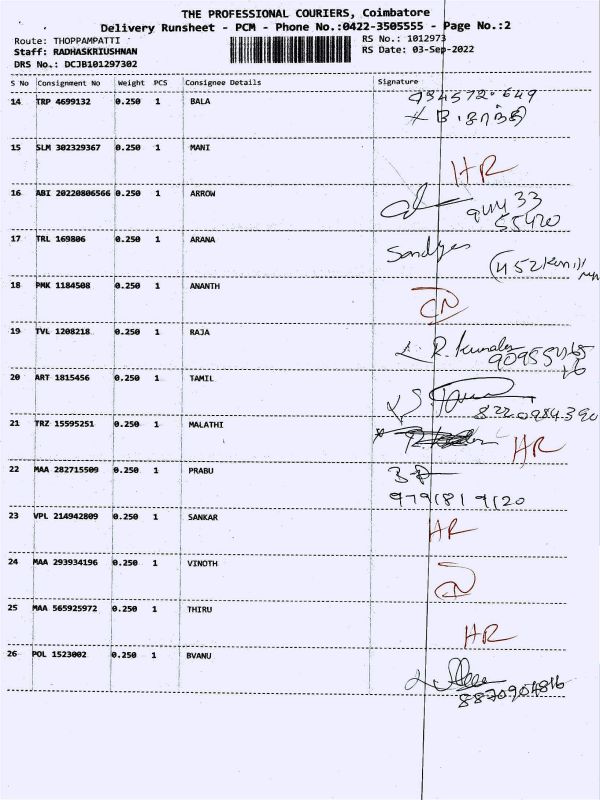 THE PROFESSIONAL COURIERS, Coimbatore
Delivery Runsheet - PCM - Phone No.:0422-3505555 - Page No.:2
Route: THOPPAMPATTI RS No.: 1012973
Staff: RADHASKRIUSHNAN RS Date: 03-Sep-2022
DRS No.: DCJB101297302
S No Consignment No Weight PCS Consignee Details Signature
14 TRP 4699132 0.250 1 BALA 934572.649
B.சாந்தி
15 SLM 302329367 0.250 1 MANI
HR
16 ABI 20220806566 0.250 1 ARROW
33
55420
17 TRL 169806 0.250 1 ARANA Sandhya
18 PMK 1184508 0.250 1 ANANTH
CN
19 TVL 1208218 0.250 1 RAJA
R.
20 ART 1815456 0.250 1 TAMIL
8220984390
21 TRZ 15595251 0.250 1 MALATHI HR
22 MAA 282715509 0.250 1 PRABU
9791819120
23 VPL 214942809 0.250 1 SANKAR HR
24 MAA 293934196 0.250 1 VINOTH
CN
25 MAA 565925972 0.250 1 THIRU
HR
26 POL 1523002 0.250 1 BVANU
8870904816